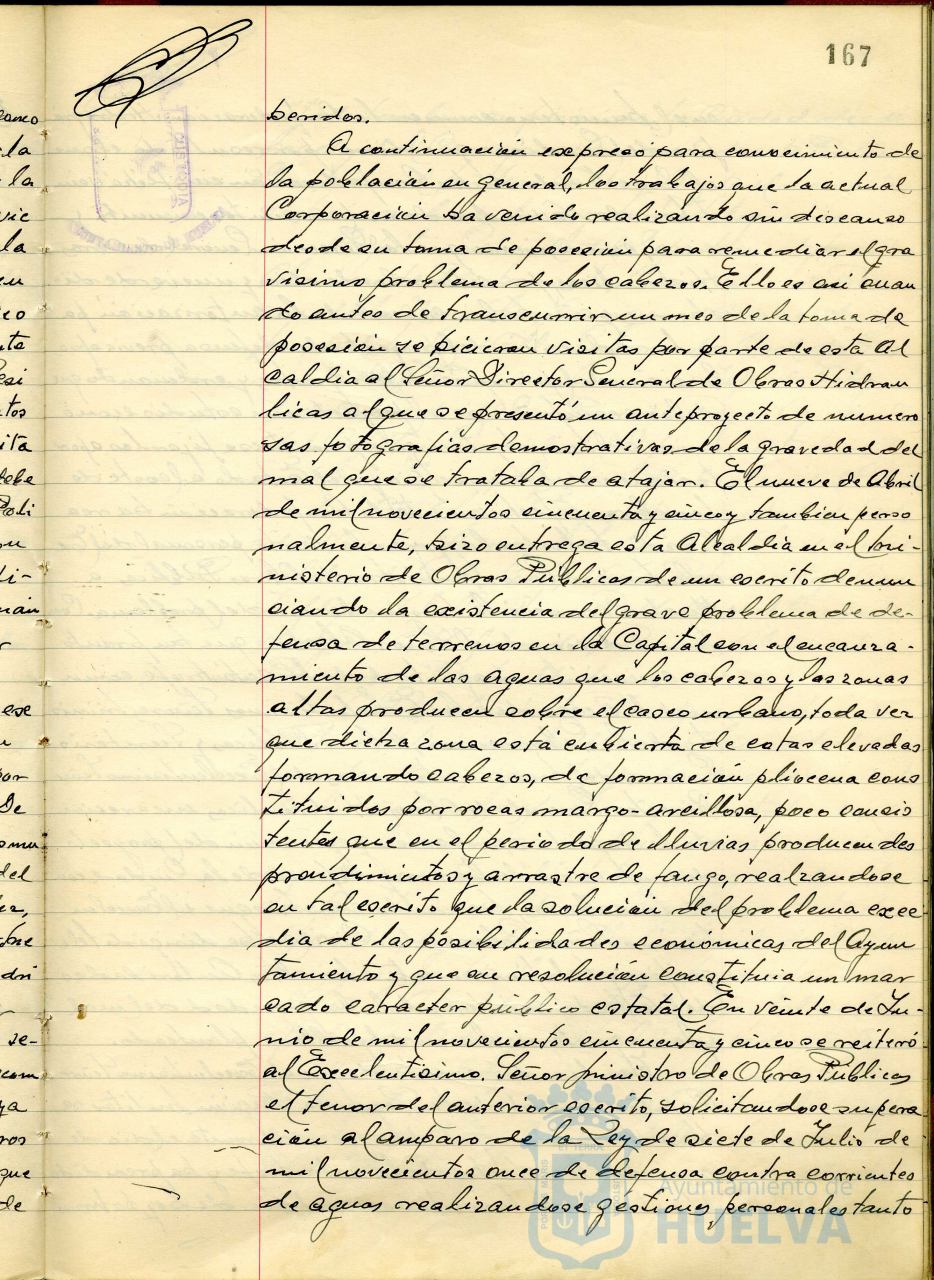 167
beridos.
A continuación expresó para conocimiento de
la población en general, los trabajos que la actual
Corporación ha venido realizando sin descanso
desde su toma de posesión para remediar el gra
visimo problema de los cabezos. Ello es así cuan
do antes de transcurrir un mes de la toma de
posesión se hicieron visitas por parte de esta Al
caldia al Señor Director General de Obras Hidrau
licas al que se presentó un anteproyecto de numero
sas fotografias demostrativas de la gravedad del
mal que se trataba de atajar. El nueve de Abril
de mil novecientos cincuenta y cinco y tambien perso
nalmente, hizo entrega esta Alcaldia en el Mi-
nisterio de Obras Públicas de un escrito denun
ciando la existencia del grave problema de de-
fensa de terrenos en la Capital con el encauza-
miento de las aguas que los cabezos y las zonas
altas producen sobre el casco urbano, toda vez
que dicha zona está cubierta de cotas elevadas
formando cabezos, de formación pliocena cons
tituidos por rocas margo-arcillosa, poco consis
tentes que en el periodo de lluvias producen des
prendimientos y arrastre de fango, realzandose
en tal escrito que la solución del problema exce
dia de las posibilidades económicas del Ayun
tamiento y que su resolución constituia un mar
cado caracter público estatal. En veinte de Ju-
nio de mil novecientos cincuenta y cinco se reiteró
al Excelentisimo. Señor Ministro de Obras Públicas
el tenor del anterior escrito, solicitandose supera
ción al amparo de la Ley de siete de Julio de
mil novecientos once de defensa contra corrientes
de aguas realizandose gestiones personales tanto
Ayuntamiento de
HUELVA